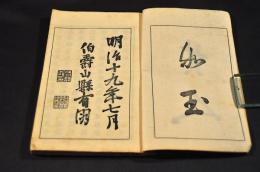 如玉
明治十九年七月
伯爵山縣有朋